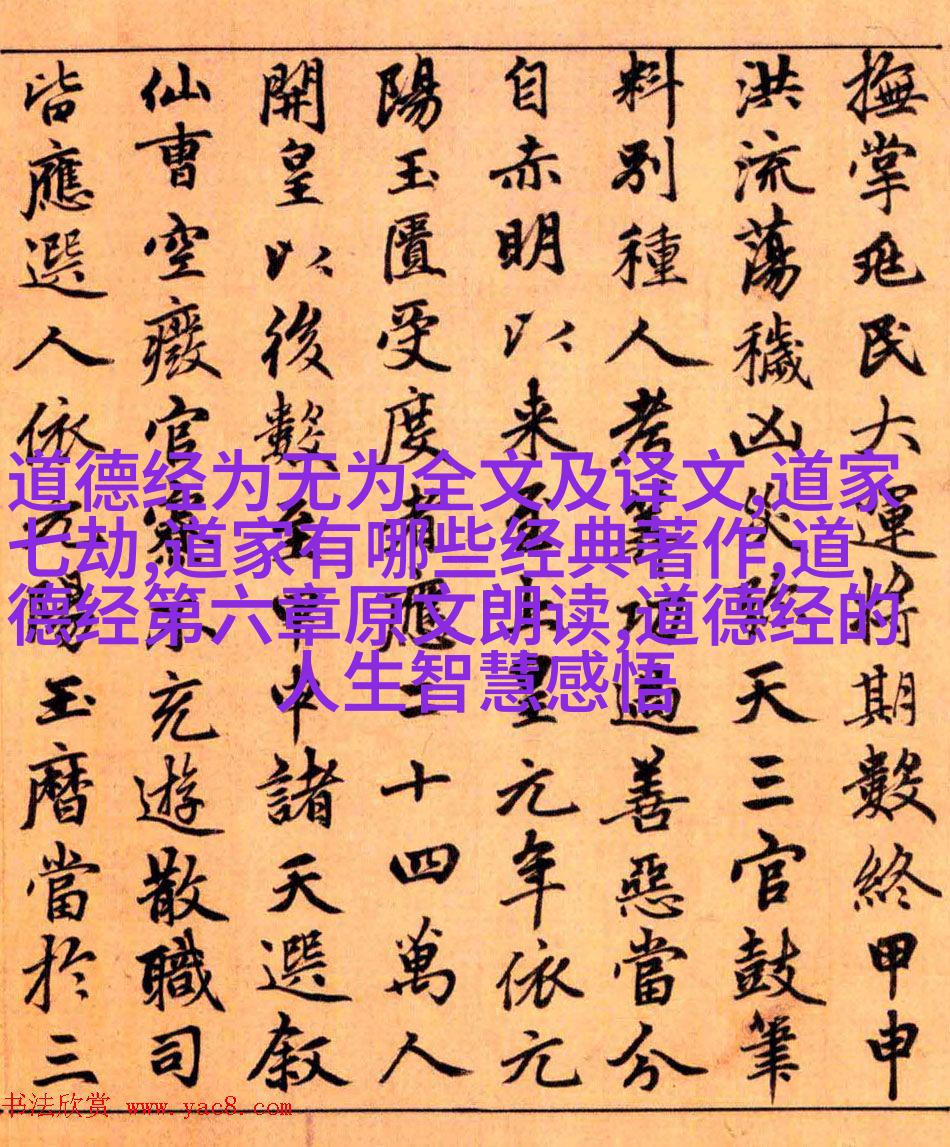 撫掌兆民大運將期數終甲申
洪流蕩穢凶災除天三官鼓筆
料別種人考筭功過善惡當分
自赤明以来至上皇元年依元
陽玉匱受度者應二十四萬人
開皇以後數至甲申諸天選敘
仙曹空廢官僚不充遊散職司
皆應選人依元陽玉曆當於三
道德经为无为全文及译文,道家
七劫,道家有哪些经典著作,道
德经第六章原文朗读,道德经的
人生智慧感悟
书法欣赏 www.yac8.com